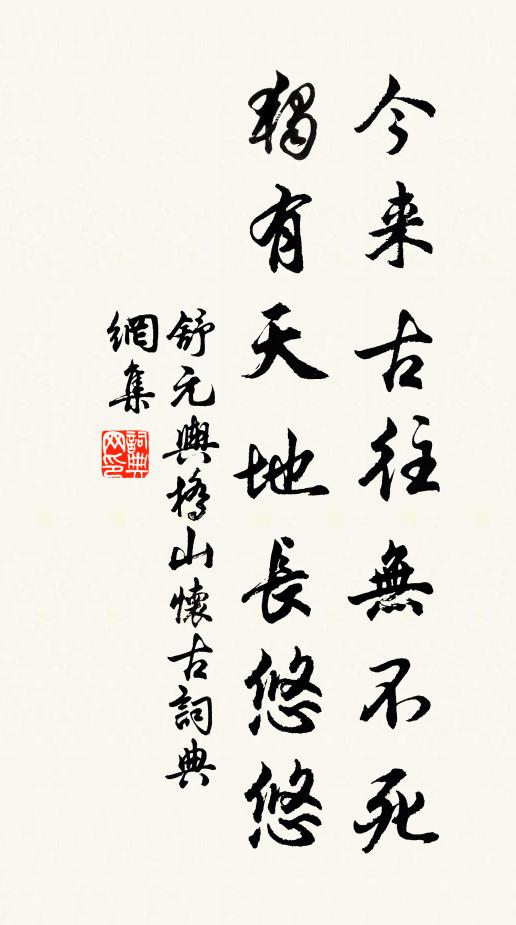 今来古往無不死
獨有天地長悠悠
舒元輿橋山懷古詞典
網集
詞典
网印